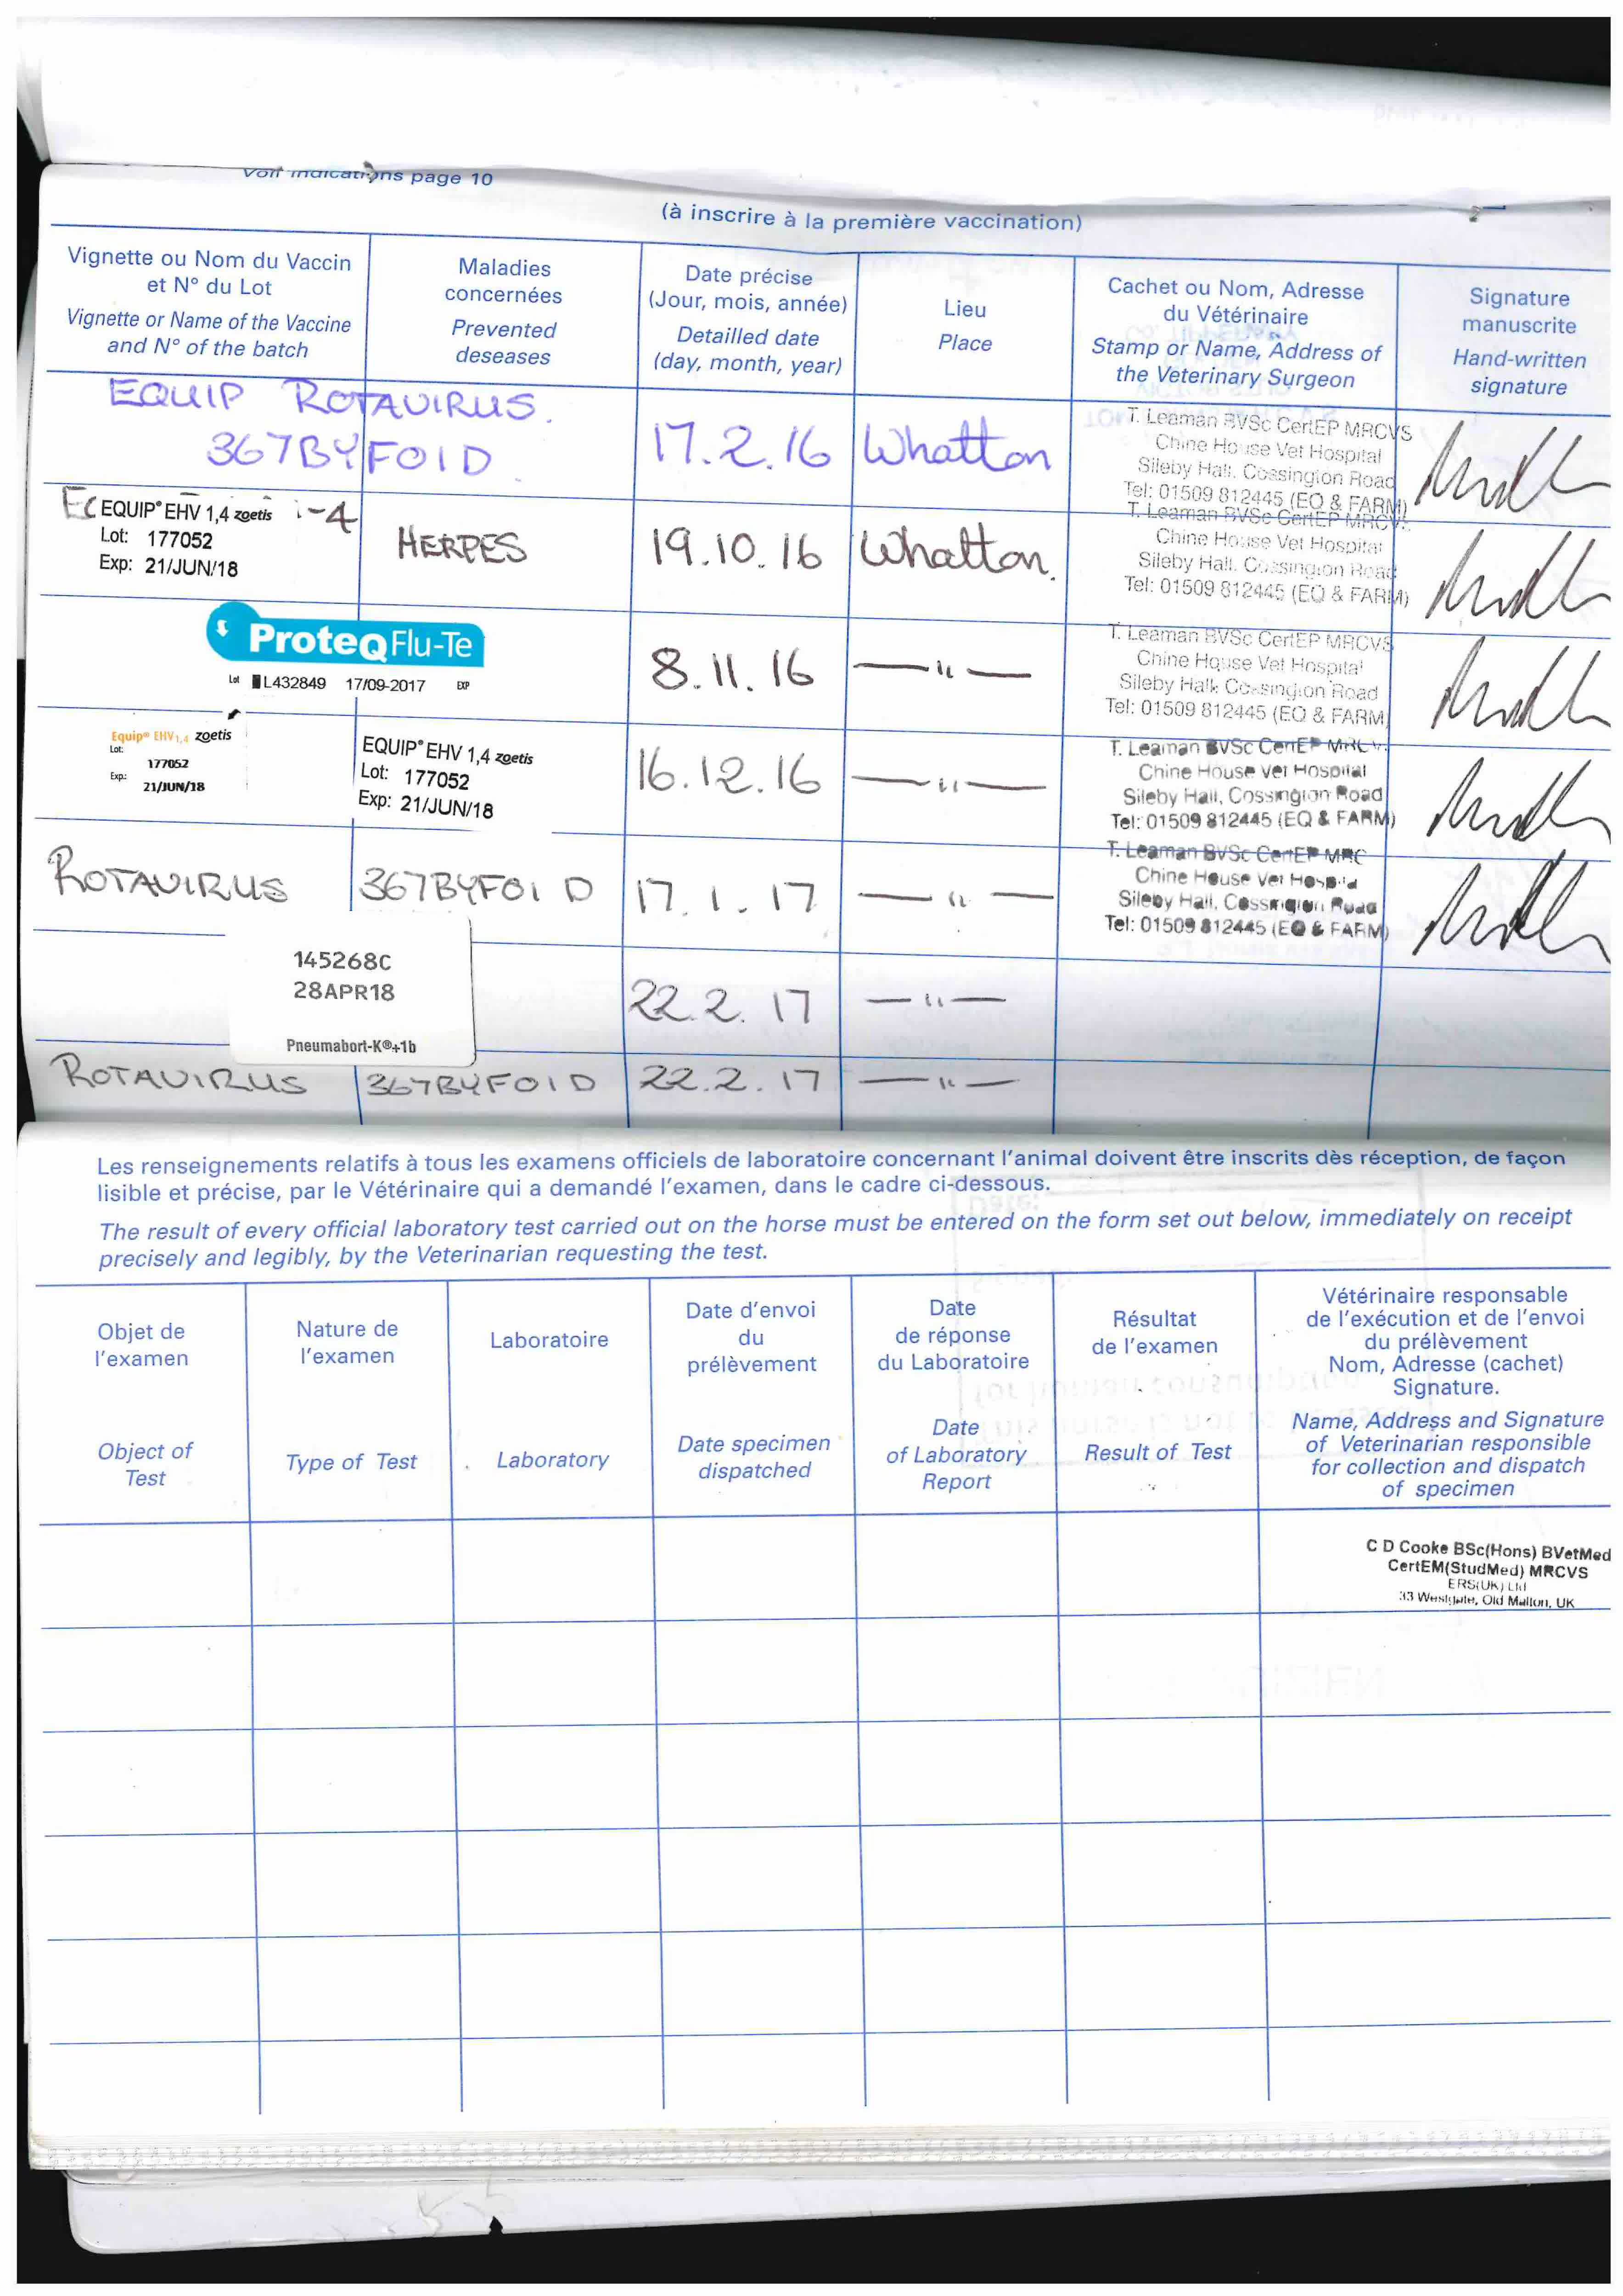 Voir indications page 10
(à inscrire à la première vaccination)
Vignette ou Nom du Vaccin
et N° du Lot
Vignette or Name of the Vaccine
and N° of the batch
Maladies
concernées
Prevented
deseases
Date précise
(Jour, mois, année)
Detailled date
(day, month, year)
Lieu
Place
Cachet ou Nom, Adresse
du Vétérinaire
Stamp or Name, Address of
the Veterinary Surgeon
Signature
manuscrite
Hand-written
signature
EQUIP ROTAVIRUS.
367BYFOID
17.2.16
Whatton
T. Leaman BVSc CertEP MRCVS
Chine House Vet Hospital
Sileby Hall, Cossington Road
Tel: 01509 812445 (EQ & FARM)
EQUIP® EHV 1,4 zoetis
Lot: 177052
Exp: 21/JUN/18
-4
HERPES
19.10.16
Whatton.
T. Leaman BVSc CertEP MRCVS
Chine House Vet Hospital
Sileby Hall, Cossington Road
Tel: 01509 812445 (EQ & FARM)
ProteqFlu-Te
Lot L432849 17/09-2017 EXP
8.11.16
— " —
T. Leaman BVSc CertEP MRCVS
Chine House Vet Hospital
Sileby Hall, Cossington Road
Tel: 01509 812445 (EQ & FARM)
Equip® EHV1,4 zoetis
Lot:
177052
Exp.:
21/JUN/18
EQUIP® EHV 1,4 zoetis
Lot: 177052
Exp: 21/JUN/18
16.12.16
— " —
T. Leaman BVSc CertEP MRCVS
Chine House Vet Hospital
Sileby Hall, Cossington Road
Tel: 01509 812445 (EQ & FARM)
ROTAVIRUS
367BYFOI D
17.1.17
— " —
T. Leaman BVSc CertEP MRC
Chine House Vet Hospital
Sileby Hall, Cossington Road
Tel: 01509 812445 (EQ & FARM)
145268C
28APR18
Pneumabort-K®+1b
22.2.17
— " —
ROTAVIRUS
367BYFOID
22.2.17
— " —
Les renseignements relatifs à tous les examens officiels de laboratoire concernant l'animal doivent être inscrits dès réception, de façon
lisible et précise, par le Vétérinaire qui a demandé l'examen, dans le cadre ci-dessous.
The result of every official laboratory test carried out on the horse must be entered on the form set out below, immediately on receipt
precisely and legibly, by the Veterinarian requesting the test.
Objet de
l'examen
Object of
Test
Nature de
l'examen
Type of Test
Laboratoire
Laboratory
Date d'envoi
du
prélèvement
Date specimen
dispatched
Date
de réponse
du Laboratoire
Date
of Laboratory
Report
Résultat
de l'examen
Result of Test
Vétérinaire responsable
de l'exécution et de l'envoi
du prélèvement
Nom, Adresse (cachet)
Signature.
Name, Address and Signature
of Veterinarian responsible
for collection and dispatch
of specimen
C D Cooke BSc(Hons) BVetMed
CertEM(StudMed) MRCVS
ERS(UK) Ltd
33 Westgate, Old Malton, UK